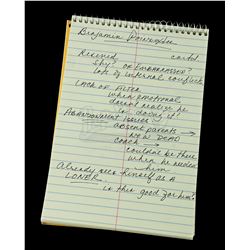 Benjamin Poindexter
Reserved
Shy? or Embarrassed?
lots of internal conflict
LACK OF FILTER
when emotional
doesn't realize he
is doing it?
ABANDONMENT ISSUES?
absent parents →
NOW DEAD
coach →
couldn't be there
when he needed
him
Already sees himself as a
LONER.
is this good for him?